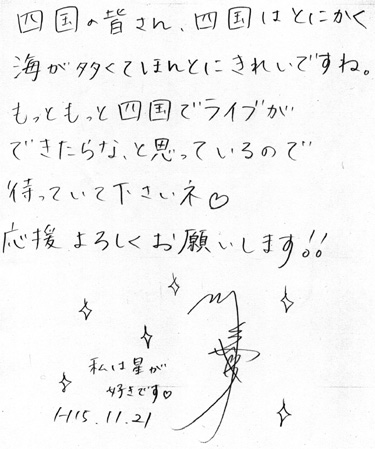 四国の皆さん、四国はとにかく
海が多くてほんとにきれいですね。
もっともっと四国でライブが
できたらな、と思っているので
待っていて下さいネ♡
応援よろしくお願いします!!
私は星が
好きです♡
H15.11.21